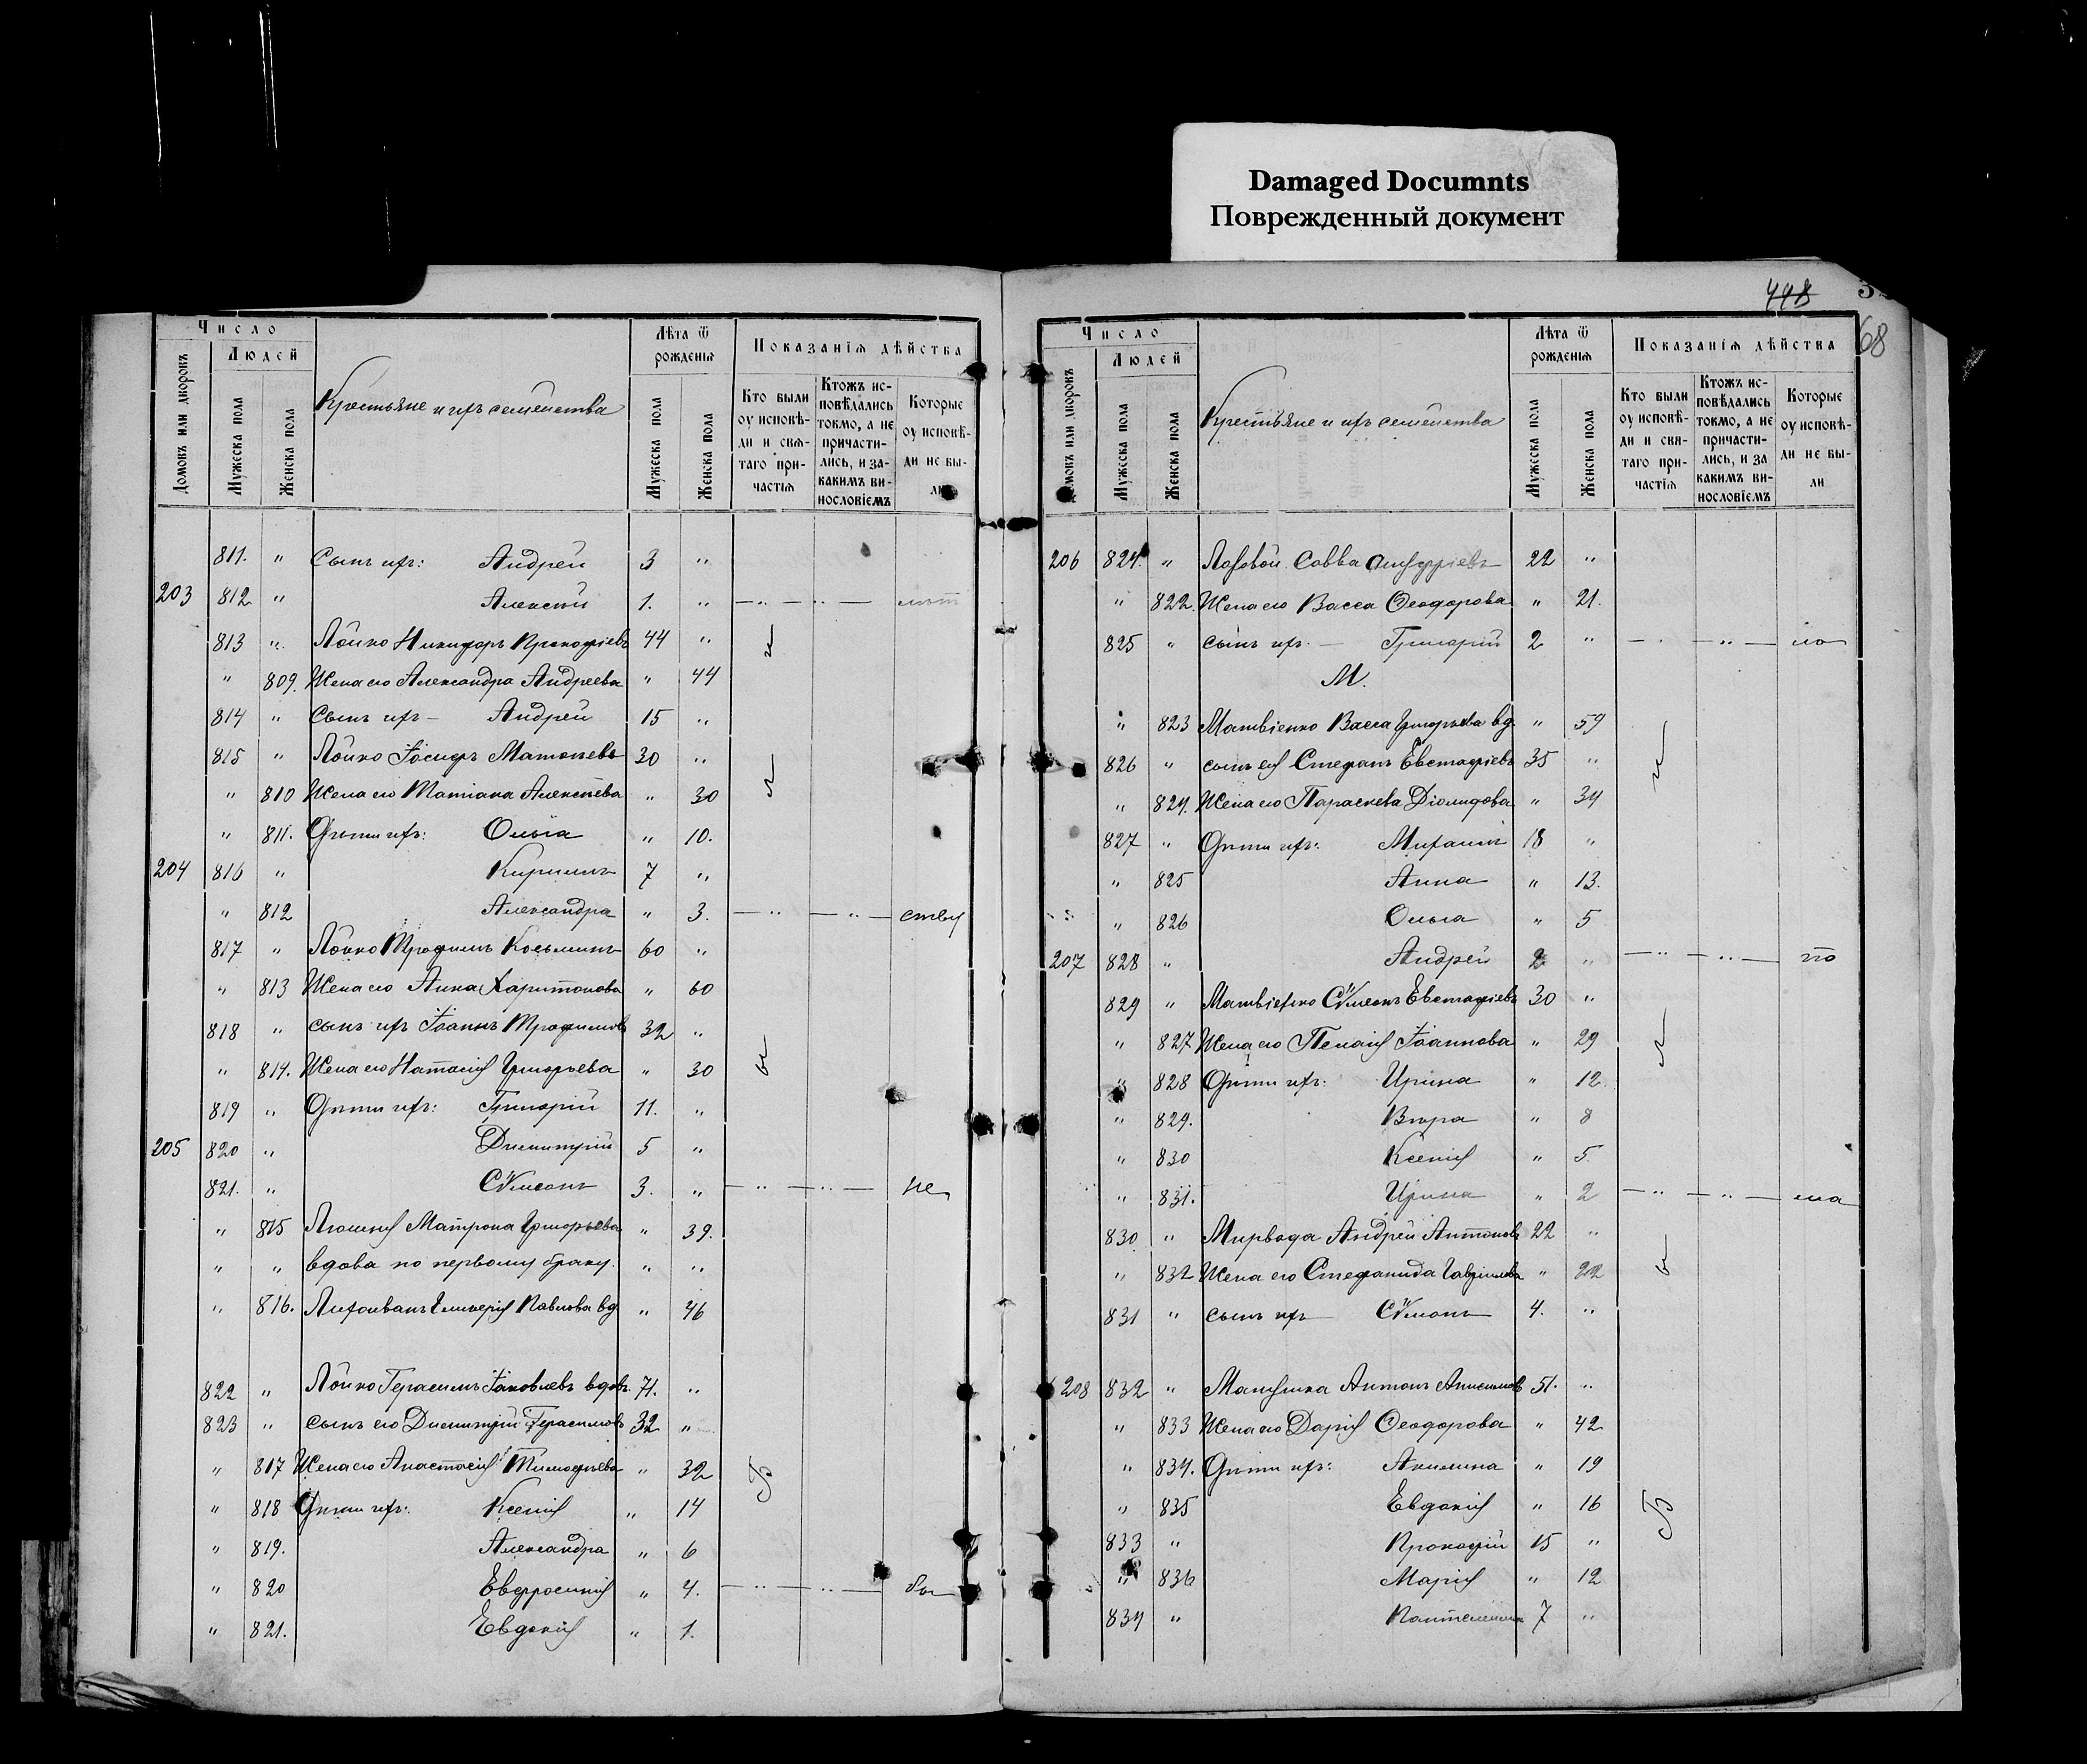 Damaged Documnts
Поврежденный документ
448
68
Число
Людей
Домовъ или дворовъ
Мужеска пола
Женска пола
Крестьяне и ихъ семейства
Лѣта ѿ рожденїѧ
Мужеска пола
Женска пола
Показанїѧ дѣйства
Кто были оу исповѣ-
ди и свѧ-
таго при-
частїѧ
Ктожъ ис-
повѣдались
токмо, а не
причасти-
лись, и за-
какимъ ви-
нословїемъ
Которые
оу исповѣ-
ди не бы-
ли
811. " Сынъ ихъ: Андрей 3 "
203 812 " Алексѣй 1. " — " — " — лѣт
813 " Лойко Никифоръ Прокофіевъ 44 "
" 809. Жена его Александра Андреева " 44
814 " Сынъ ихъ — Андрей 15 "
815 " Лойко Іосифъ Матѳеевъ 30 "
" 810 Жена его Татіана Алексѣева " 30
" 811. Дѣти ихъ: Ольга " 10.
204 816 " Кириллъ 7 "
" 812 Александра " 3. — " — " — ству
817 " Лойко Трофимъ Косьминъ 60 "
" 813 Жена его Анна Харитонова " 60
818 " сынъ ихъ Іоаннъ Трофимовъ 32 "
" 814. Жена его Наталія Григорьева " 30
819 " Дѣти ихъ: Григорій 11. "
205 820 " Димитрій 5 "
821. " Сѵмеонъ 3. " — " — " — не
" 815 Матрона Григорьева " 39.
" " вдова по первому браку. " "
" 816. Гликерія Павлова вд. " 46
822 " Лойко Герасимъ Іаковлевъ вдовъ 71. "
823 " сынъ его Димитрій Герасимовъ 32 "
" 817 Жена его Анастасія Тимоѳеева " 32
" 818 Дѣти ихъ: Ксенія " 14
" 819. Александра " 6
" 820 Евфросинія " 4. — " — " — бы
" 821. Евдокія " 1.
Число
Людей
Домовъ или дворовъ
Мужеска пола
Женска пола
Крестьяне и ихъ семейства
Лѣта ѿ рожденїѧ
Мужеска пола
Женска пола
Показанїѧ дѣйства
Кто были
оу исповѣ-
ди и свѧ-
таго при-
частїѧ
Ктожъ ис-
повѣдались
токмо, а не
причасти-
лись, и за
какимъ ви-
нословїемъ
Которые
оу исповѣ-
ди не бы-
ли
206 824. " Лозовой Савва 22 "
" 822. Жена его Васса Ѳеодорова " 21.
825 " сынъ ихъ — Григорій 2 " — " — " — ло
М.
" 823 Матвіенко Васса Григорьева вд. " 59
826 " сынъ ея Стефанъ Евстафіевъ 35 "
" 824. Жена его Параскева Діомидова " 34
827 " Дѣти ихъ: Михаилъ 18 "
" 825 Анна " 13.
" 826 Ольга " 5
207 828 " Андрей 2 " — " — " — по
829 " Матвіенко Сѵмеонъ Евстафіевъ 30 "
" 827 Жена его Пелагія Іоаннова " 29
" 828 Дѣти ихъ: Ирина " 12
" 829. Вѣра " 8
" 830 Ксенія " 5.
" 831. Ирина " 2 — " — " — ма
830 " Мирвода Андрей Антоновъ 22 "
" 832 Жена его Стефанида Гавріилова " 22
831 " сынъ ихъ Сѵмонъ 4. "
208 832 " Антонъ Анисимовъ 51. "
" 833 Жена его Дарія Ѳеодорова " 42
" 834. Дѣти ихъ: Акилина " 19
" 835 Евдокія " 16
833 " Прокопій 15 "
" 836 Марія " 12
834 " Пантелеимонъ 7 "